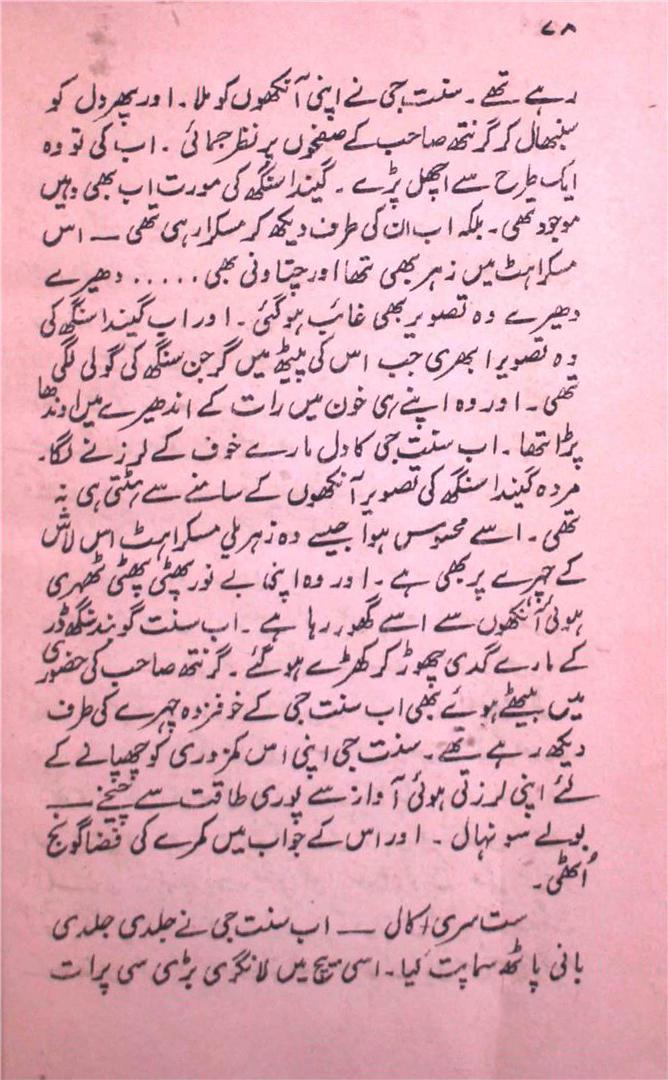 ۷۸
رہے تھے۔ سنت جی نے اپنی آنکھوں کو ملا۔ اور پھر دل کو
سنبھال کر گرنتھ صاحب کے صفحوں پر نظر جمائی۔ اب کی تو وہ
ایک طرح سے اچھل پڑے۔ گیندا سنگھ کی مورت اب بھی وہیں
موجود تھی۔ بلکہ اب ان کی طرف دیکھ کر مسکرا رہی تھی — اس
مسکراہٹ میں زہر بھی تھا اور چتاونی بھی ..... دھیرے
دھیرے وہ تصویر بھی غائب ہو گئی۔ اور اب گیندا سنگھ کی
وہ تصویر ابھری جب اس کی پیٹھ میں گرجن سنگھ کی گولی لگی
تھی۔ اور وہ اپنے ہی خون میں رات کے اندھیرے میں اوندھا
پڑا تھا۔ اب سنت جی کا دل مارے خوف کے لرزنے لگا۔
مردہ گیندا سنگھ کی تصویر آنکھوں کے سامنے سے ہٹتی ہی نہ
تھی۔ اسے محسوس ہوا جیسے وہ زہریلی مسکراہٹ اس لاش
کے چہرے پر بھی ہے۔ اور وہ اپنی بے نور پھٹی پھٹی ٹھہری
ہوئی آنکھوں سے اسے گھور رہا ہے۔ اب سنت گوبند سنگھ ڈر
کے مارے گدی چھوڑ کر کھڑے ہو گئے۔ گرنتھ صاحب کی حضوری
میں بیٹھے ہوئے بھی اب سنت جی کے خوفزدہ چہرے کی طرف
دیکھ رہے تھے۔ سنت جی اپنی اس کمزوری کو چھپانے کے
لئے اپنی لرزتی ہوئی آواز سے پوری طاقت سے چیخے —
بولے سو نہال۔ اور اس کے جواب میں کمرے کی فضا گونج
اُٹھی۔
ست سری اکال — اب سنت جی نے جلدی جلدی
بانی پاٹھ سماپت کیا۔ اسی بیچ میں لانگری بڑی سی پرات